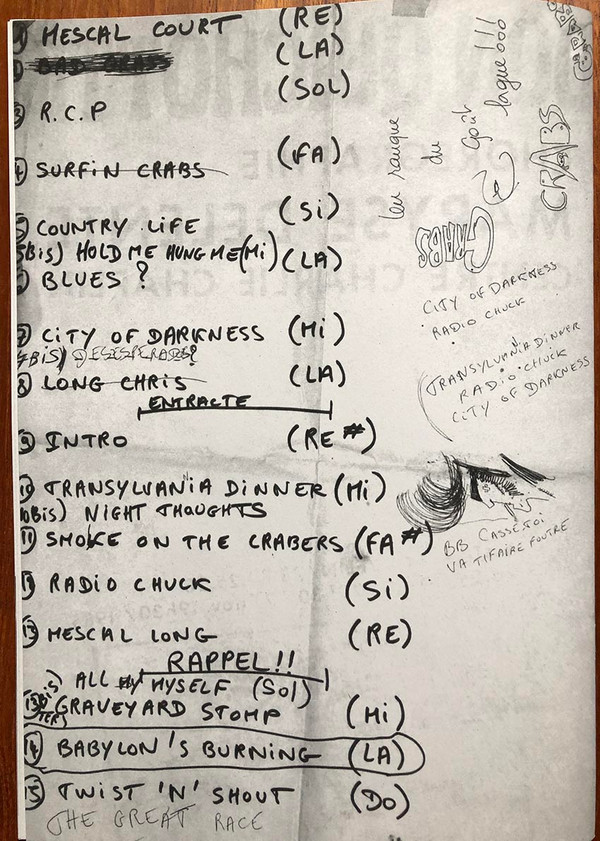 1 MESCAL COURT (RE)
(LA)
(SOL)
3 R.C.P
4 SURFIN CRABS (FA)
5 COUNTRY LIFE (Si)
5Bis) HOLD ME HUNG ME (Mi)
BLUES ? (LA)
7 CiTY OF DARKNESS (Mi)
7BiS)
8 LONG CHRiS (LA)
ENTRACTE
9 INTRO (RE #)
10 TRANSYLVANiA DiNNER (Mi)
10Bis) NiGHT THOUGHTS
11 SMOKE ON THE CRABERS (FA #)
RADiO CHUCK (Si)
13 MESCAL LONG (RE)
RAPPEL!!
Bis) ALL BY MYSELF (SOL)
TER) GRAVEYARD STOMP (Mi)
14 BABYLON'S BURNiNG (LA)
15 TWiST 'N' SHOUT (DO)
THE GREAT RACE
CRABS
du
goût
CRABS
CRABS
CiTY OF DARKNESS
RADiO CHUCK
TRANSYLVANiA DiNNER
RADiO CHUCK
CiTY OF DARKNESS
BB CASSE.TOi
VA TiFAIRE FOUTRE